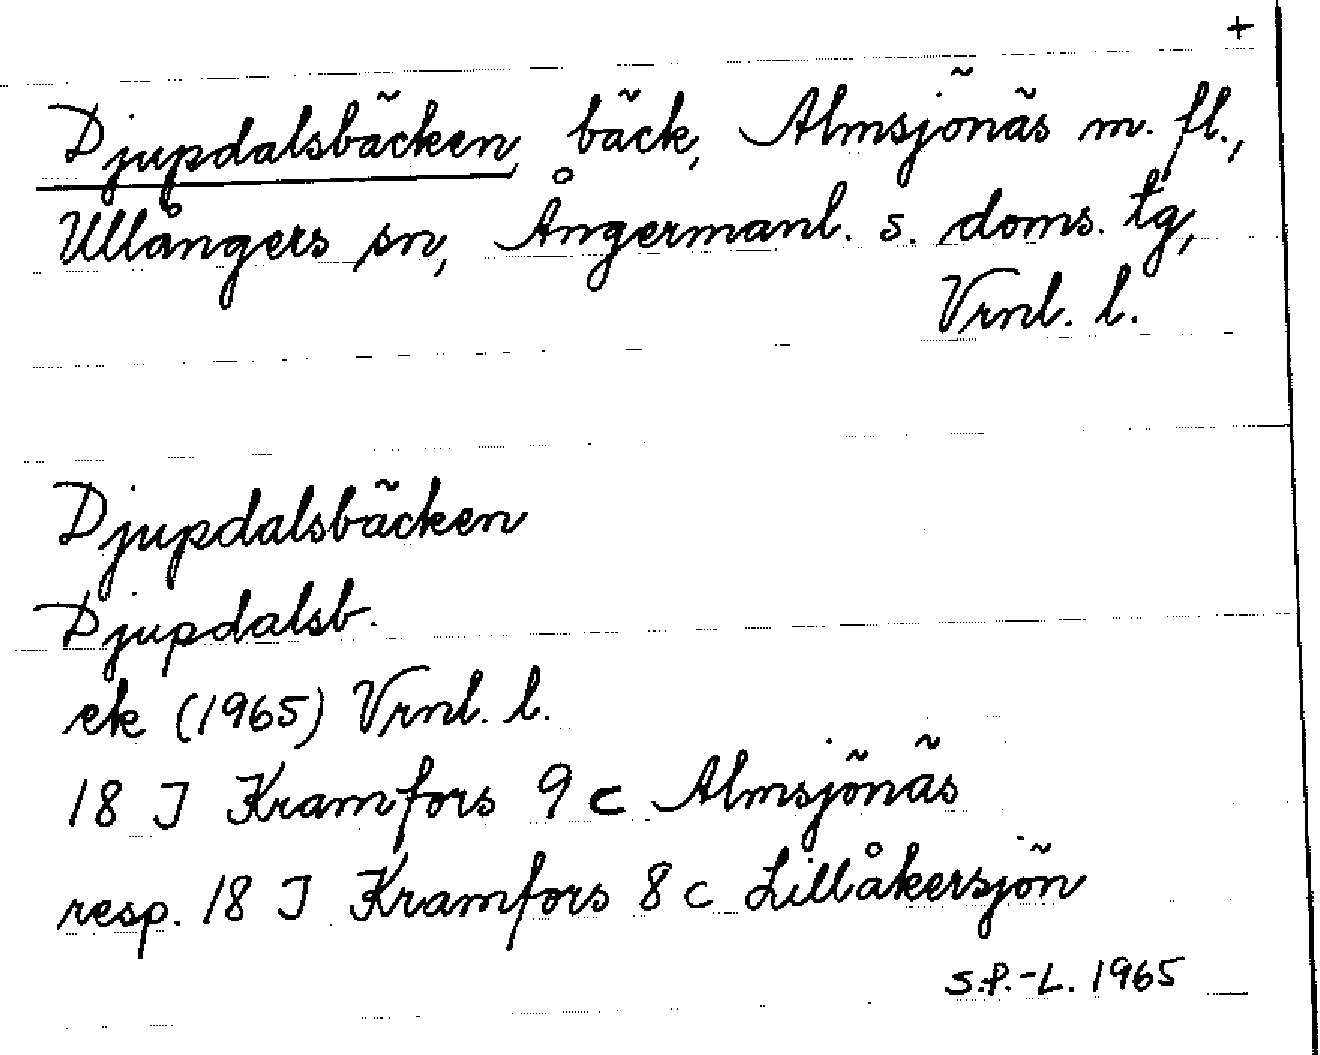 +
Djupdalsbäcken, bäck, Almsjönäs m. fl.,
Ullångers sn, Ångermanl. s. doms. tg,
Vrnl. l.
Djupdalsbäcken
Djupdalsb.
ek (1965) Vrnl. l.
18 J Kramfors 9 c Almsjönäs
resp. 18 J Kramfors 8 c Lillåkersjön
S.P.-L. 1965